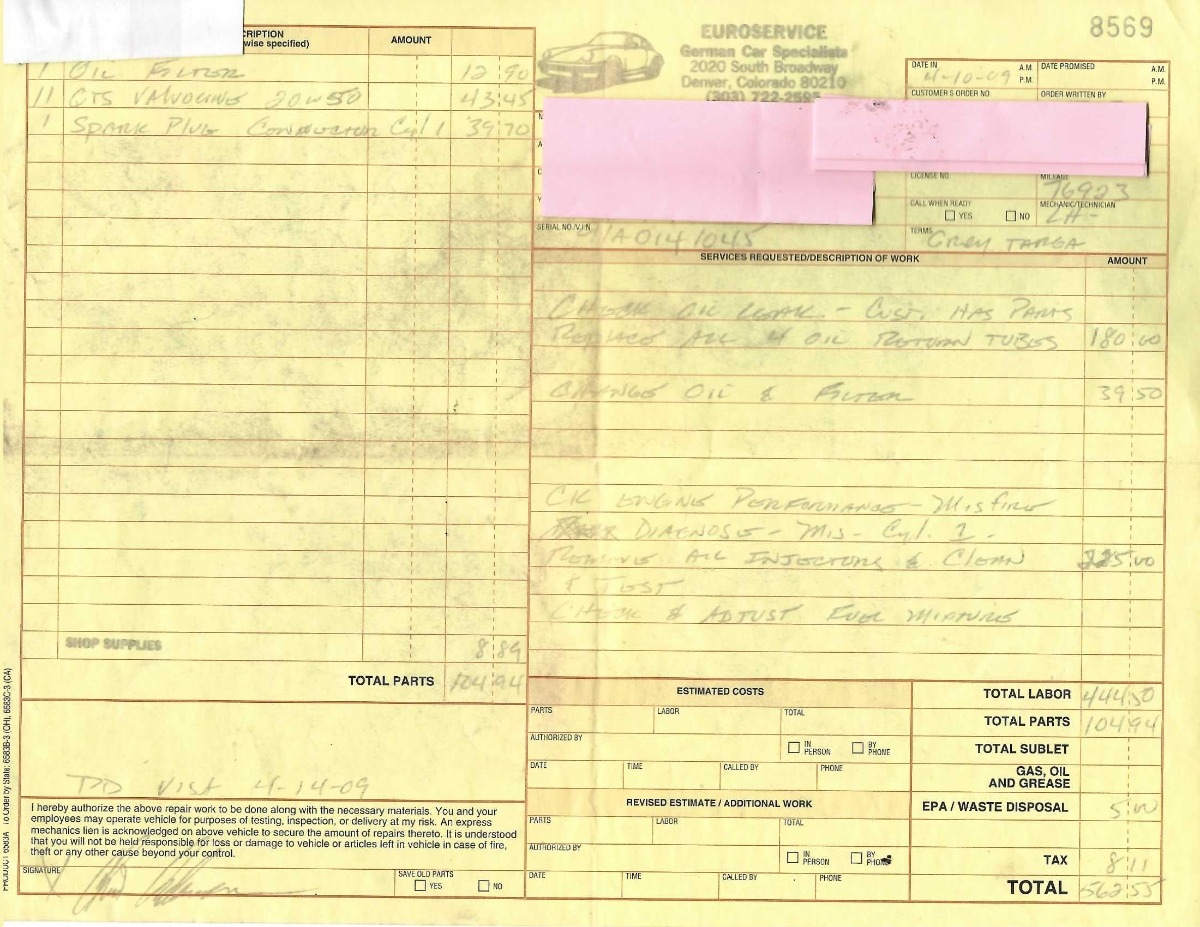 8569
EUROSERVICE
German Car Specialists
2020 South Broadway
Denver, Colorado 80210
(303) 722-2595
DATE IN 4-10-09 A.M. P.M.
DATE PROMISED A.M. P.M.
CUSTOMER'S ORDER NO.
ORDER WRITTEN BY
LICENSE NO.
MILEAGE 76923
CALL WHEN READY YES NO
MECHANIC/TECHNICIAN LH-
SERIAL NO./V.I.N. 91A0141045
TERMS Grey TARGA
AMOUNT
1 OIL FILTER 12 90
11 QTS VALVOLINE 20W50 43 45
1 SPARK PLUG CONNECTOR Cyl 1 39 70
SHOP SUPPLIES 8 89
TOTAL PARTS 104 94
PD VISA 4-14-09
I hereby authorize the above repair work to be done along with the necessary materials. You and your
employees may operate vehicle for purposes of testing, inspection, or delivery at my risk. An express
mechanics lien is acknowledged on above vehicle to secure the amount of repairs thereto. It is understood
that you will not be held responsible for loss or damage to vehicle or articles left in vehicle in case of fire,
theft or any other cause beyond your control.
SIGNATURE X
SAVE OLD PARTS YES NO
SERVICES REQUESTED/DESCRIPTION OF WORK AMOUNT
CHECK OIL LEAK - CUST. HAS PARTS
REPLACE ALL 4 OIL RETURN TUBES 180 00
CHANGE OIL & FILTER 39 50
CK ENGINE PERFORMANCE - Misfire
DIAGNOSE - Mis - Cyl. 1 -
REMOVE ALL INJECTORS & CLEAN 225 00
& TEST
CHECK & ADJUST FUEL MIXTURE
ESTIMATED COSTS
PARTS LABOR TOTAL
AUTHORIZED BY IN PERSON BY PHONE
DATE TIME CALLED BY PHONE
REVISED ESTIMATE / ADDITIONAL WORK
PARTS LABOR TOTAL
AUTHORIZED BY IN PERSON BY PHONE
DATE TIME CALLED BY PHONE
TOTAL LABOR 444 50
TOTAL PARTS 104 94
TOTAL SUBLET
GAS, OIL AND GREASE
EPA / WASTE DISPOSAL 5 00
TAX 8 11
TOTAL 562 55